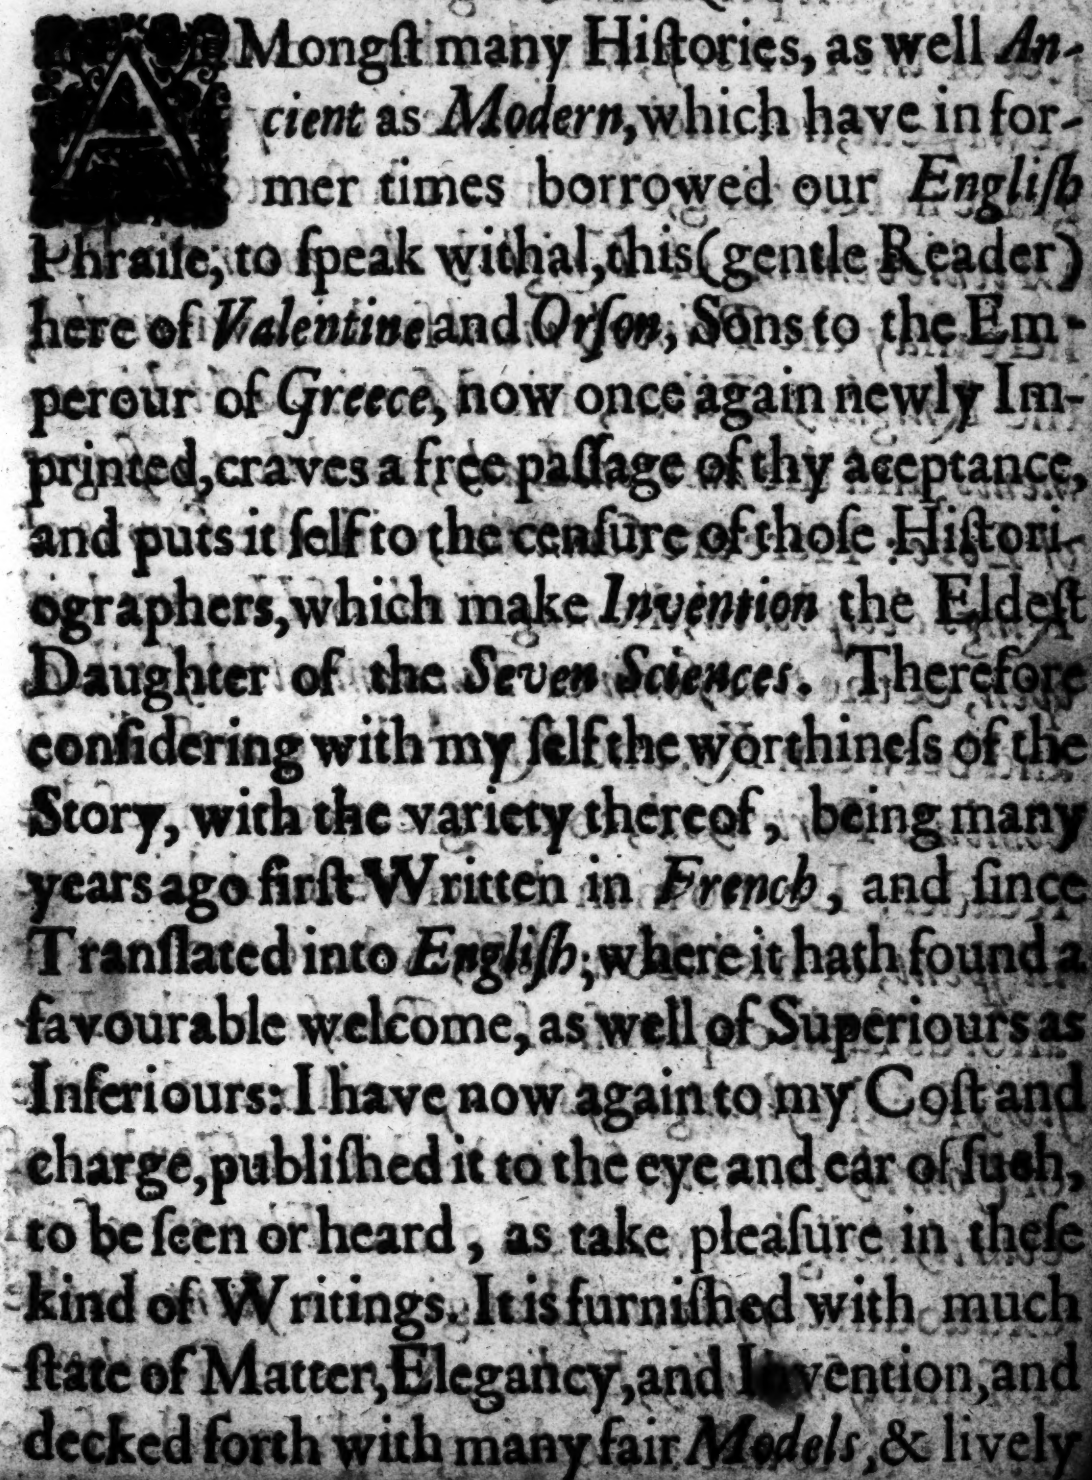 AMongſt many Hiſtories, as well An-
cient as Modern, which have in for-
mer times borrowed our Engliſh
Phraiſe, to ſpeak withal, this (gentle Reader)
here of Valentine and Orſon, Sons to the Em-
perour of Greece, now once again newly Im-
printed, craves a free paſſage of thy aceptance,
and puts it ſelf to the cenſure of thoſe Hiſtori-
ographers, which make Invention the Eldeſt
Daughter of the Seven Sciences. Therefore
conſidering with my ſelf the worthineſs of the
Story, with the variety thereof, being many
years ago firſt Written in French, and ſince
Tranſlated into Engliſh; where it hath found a
favourable welcome, as well of Superiours as
Inferiours: I have now again to my Coſt and
charge, publiſhed it to the eye and ear of ſuch,
to be ſeen or heard, as take pleaſure in theſe
kind of Writings. It is furniſhed with much
ſtate of Matter, Elegancy, and Invention, and
decked forth with many fair Models, & lively